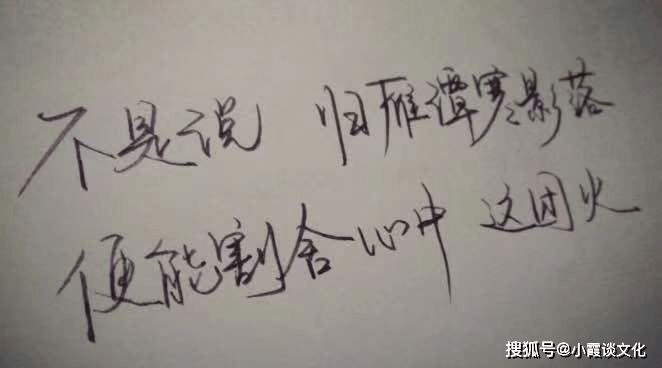 不是说 归雁潭寒影落
便能割舍心中 这团火
搜狐号@小霞谈文化